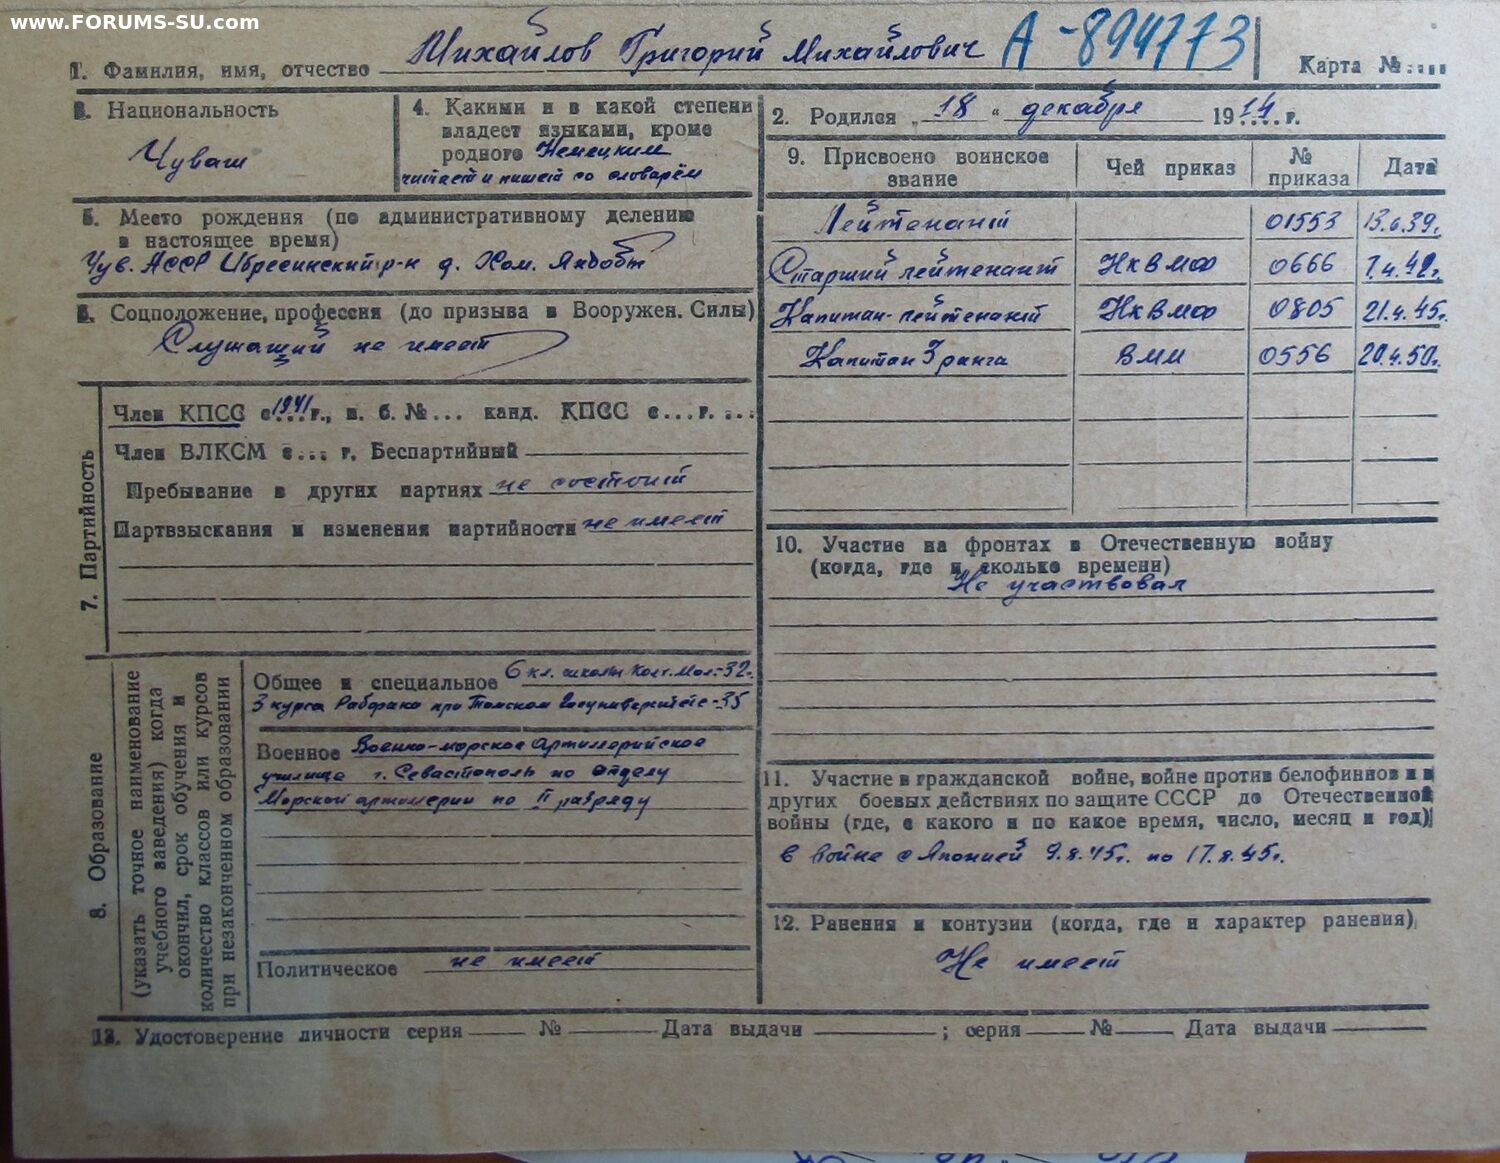 www.FORUMS-SU.com
Михайлов Григорий Михайлович А-894773
1. Фамилия, имя, отчество
Карта №....
3. Национальность
Чуваш
4. Какими и в какой степени
владеет языками, кроме
родного Немецким
читает и пишет со словарём
2. Родился „ 18 “ декабря 1914 г.
5. Место рождения (по административному делению
в настоящее время)
Чув. АССР Ибресинский р-н д. Хом. Яндобы
6. Соцположение, профессия (до призыва в Вооружен. Силы)
Служащий не имеет
9. Присвоено воинское
звание
Чей приказ
№
приказа
Дата
Лейтенант 01553 13.6.39г.
Старший лейтенант НКВМФ 0666 7.4.42г.
Капитан-лейтенант НКВМФ 0805 21.4.45г.
Капитан 3 ранга ВММ 0556 20.4.50г.
7. Партийность
Член КПСС с 1941 г., п. б. №... канд. КПСС с...г. ...
Член ВЛКСМ с... г. Беспартийный
Пребывание в других партиях не состоит
Партвзыскания и изменения партийности не имеет
10. Участие на фронтах в Отечественную войну
(когда, где и сколько времени)
Не участвовал
8. Образование
(указать точное наименование
учебного заведения) когда
окончил, срок обучения и
количество классов или курсов
при незаконченном образовании
Общее и специальное 6 кл. школы Кол. Мол.-32г.
3 курса Рабфака при Томском Госуниверситете-35
Военное Военно-морское Артиллерийское
училище г. Севастополь по отделу
Морской артиллерии по II разряду
Политическое не имеет
11. Участие в гражданской войне, войне против белофиннов и в
других боевых действиях по защите СССР до Отечественной
войны (где, с какого и по какое время, число, месяц и год)
В войне с Японией 9.8.45г. по 17.8.45г.
12. Ранения и контузии (когда, где и характер ранения)
Не имеет
13. Удостоверение личности серия № Дата выдачи ; серия № Дата выдачи